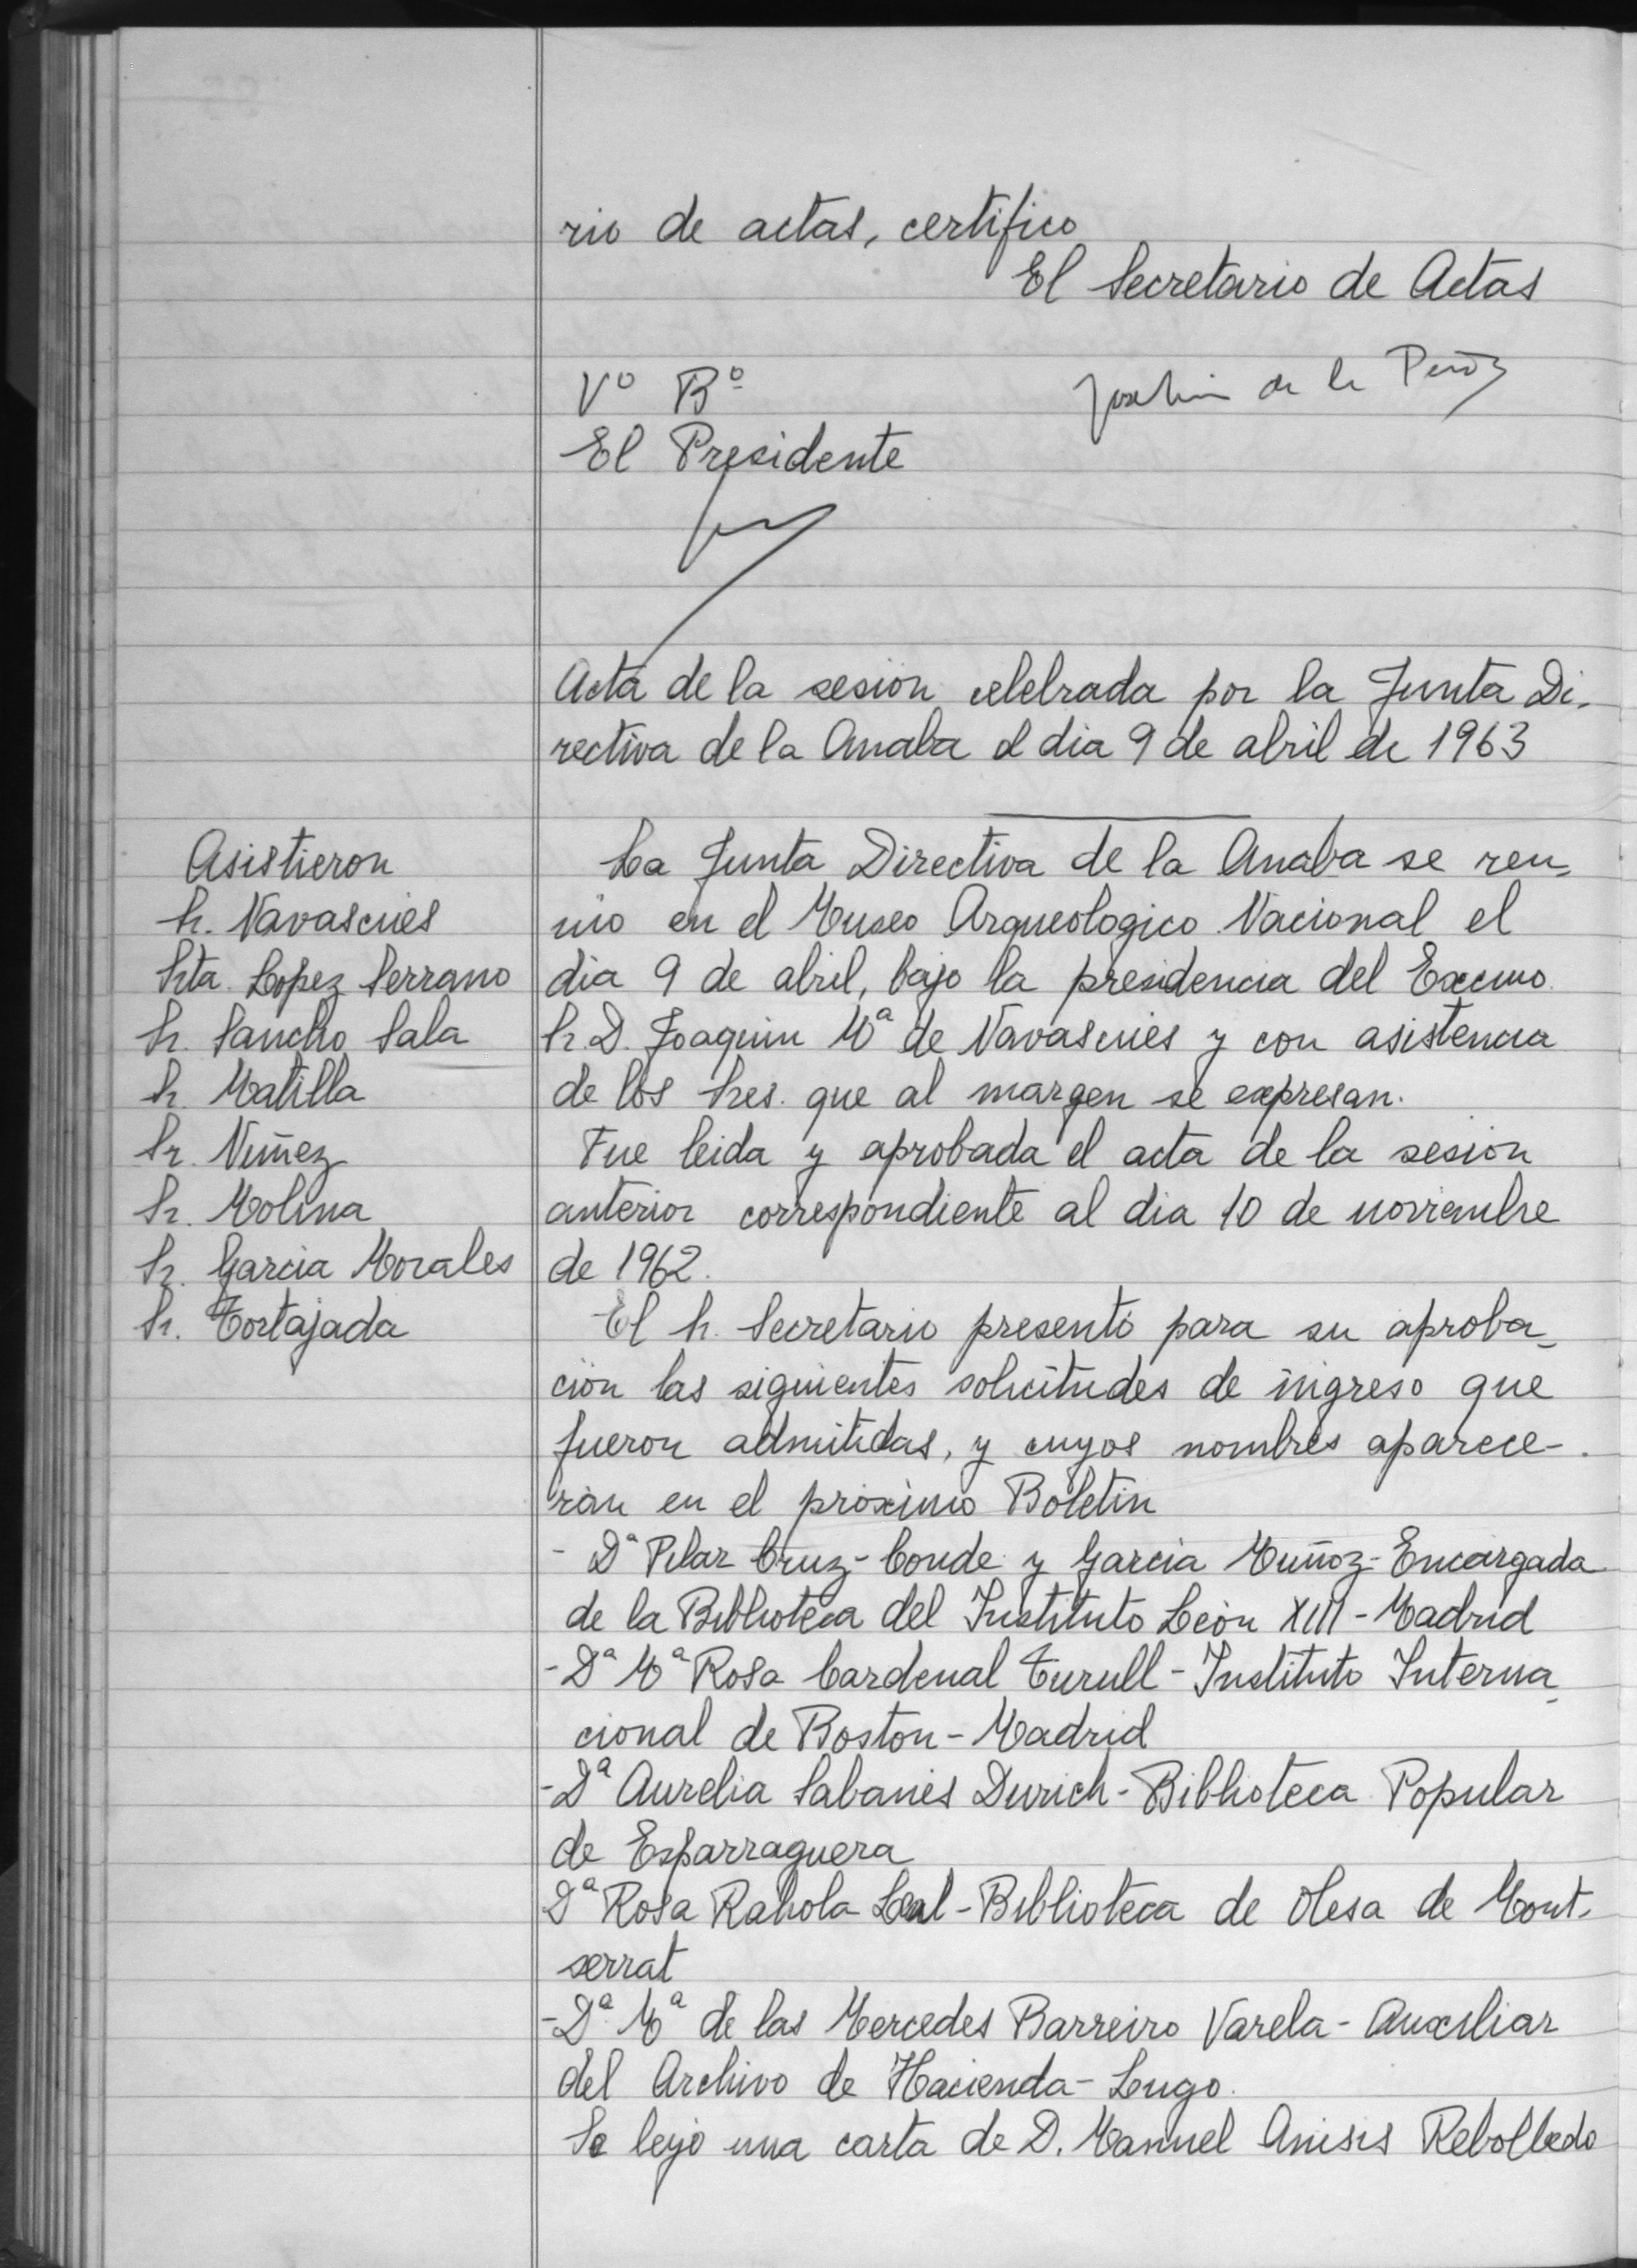 rio de actas, certifico
El Secretario de Actas
Vº Bº
de la Peña
El Presidente
Acta de la sesión celebrada por la Junta Di-
rectiva de la Anaba el dia 9 de abril de 1963
Asistieron
Sr. Navascués
Srta. Lopez Serrano
Sr. Sancho Sala
Sr. Matilla
Sr. Nuñez
Sr. Molina
Sr. Garcia Morales
Sr. Tortajada
La Junta Directiva de la Anaba se reu-
nio en el Museo Arqueologico Nacional el
dia 9 de abril, bajo la presidencia del Excmo.
Sr. D. Joaquin Mª de Navascués y con asistencia
de los Sres. que al margen se expresan.
Fue leida y aprobada el acta de la sesión
anterior correspondiente al dia 10 de noviembre
de 1962.
El Sr. Secretario presentó para su aproba-
ción las siguientes solicitudes de ingreso que
fueron admitidas, y cuyos nombres aparece-
rán en el próximo Boletín
- Dª Pilar Cruz-Conde y Garcia Muñoz- Encargada
de la Biblioteca del Instituto León XIII - Madrid
- Dª Mª Rosa Cardenal Turull - Instituto Interna-
cional de Boston - Madrid
- Dª Aurelia Sabanés Durich - Biblioteca Popular
de Esparraguera
Dª Rosa Rahola Leal - Biblioteca de Olesa de Mont-
serrat
- Dª. Mª de las Mercedes Barreiro Varela - Auxiliar
del Archivo de Hacienda - Lugo.
Se leyó una carta de D. Manuel Rebolledo